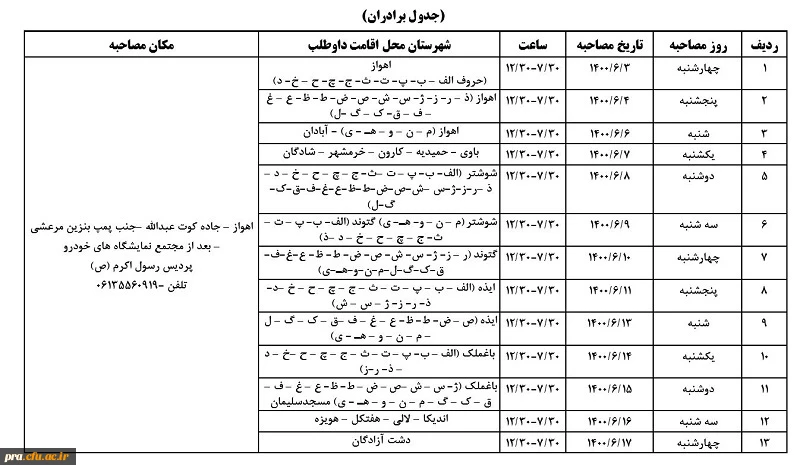 (جدول برادران)
ردیف | روز مصاحبه | تاریخ مصاحبه | ساعت | شهرستان محل اقامت داوطلب | مکان مصاحبه
۱ | چهارشنبه | ۱۴۰۰/۶/۳ | ۷/۳۰-۱۲/۳۰ | اهواز
(حروف الف – ب- پ- ت- ث- ج- چ – ح – خ- د)
۲ | پنجشنبه | ۱۴۰۰/۶/۴ | ۷/۳۰-۱۲/۳۰ | اهواز (ذ – ر- ز- ژ- س – ش- ص- ض- ط- ظ- ع – غ
– ف – ق- ک – گ- ل)
۳ | شنبه | ۱۴۰۰/۶/۶ | ۷/۳۰-۱۲/۳۰ | اهواز (م – ن – و – هـ – ی) – آبادان
۴ | یکشنبه | ۱۴۰۰/۶/۷ | ۷/۳۰-۱۲/۳۰ | باوی – حمیدیه – کارون – خرمشهر – شادگان
۵ | دوشنبه | ۱۴۰۰/۶/۸ | ۷/۳۰-۱۲/۳۰ | شوشتر (الف- ب- پ – ت –ث- ج- چ – ح – خ – د –
ذ –ر-ز-ژ-س –ش-ص-ض-ط-ظ-ع-غ-ف-ق-ک-
گ-ل)
۶ | سه شنبه | ۱۴۰۰/۶/۹ | ۷/۳۰-۱۲/۳۰ | شوشتر (م – ن – و- هـ- ی) گتوند (الف- ب- پ – ت –
ث- ج – چ – ح – خ – د –ذ)
۷ | چهارشنبه | ۱۴۰۰/۶/۱۰ | ۷/۳۰-۱۲/۳۰ | گتوند (ر – ز- ژ – س – ش – ص – ض – ط – ظ – ع-غ-ف-
ق-ک-گ-ل-م-ن-و-هـ-ی)
۸ | پنجشنبه | ۱۴۰۰/۶/۱۱ | ۷/۳۰-۱۲/۳۰ | ایذه (الف – ب- پ – ت – ث – ج – چ – ح – خ –د-
ذ- ر- ز – ژ – س – ش)
۹ | شنبه | ۱۴۰۰/۶/۱۳ | ۷/۳۰-۱۲/۳۰ | ایذه (ص – ض- ط- ظ- ع – غ – ف –ق – ک – گ – ل
– م – ن – و – هـ – ی)
۱۰ | یکشنبه | ۱۴۰۰/۶/۱۴ | ۷/۳۰-۱۲/۳۰ | باغملک (الف – ب- پ – ت – ث – ج – چ – ح –خ – د
– ذ- ر-ز)
۱۱ | دوشنبه | ۱۴۰۰/۶/۱۵ | ۷/۳۰-۱۲/۳۰ | باغملک (ژ- س – ش –ص – ض – ط- ظ- ع – غ – ف –
ق – ک – گ – م – ن – و – هـ – ی) مسجدسلیمان
۱۲ | سه شنبه | ۱۴۰۰/۶/۱۶ | ۷/۳۰-۱۲/۳۰ | اندیکا – لالی – هفتکل – هویزه
۱۳ | چهارشنبه | ۱۴۰۰/۶/۱۷ | ۷/۳۰-۱۲/۳۰ | دشت آزادگان
اهواز – جاده کوت عبدالله –جنب پمپ بنزین مرعشی
– بعد از مجتمع نمایشگاه های خودرو
پردیس رسول اکرم (ص)
تلفن -۰۶۱۳۵۵۶۰۹۱۹
pra.cfu.ac.ir